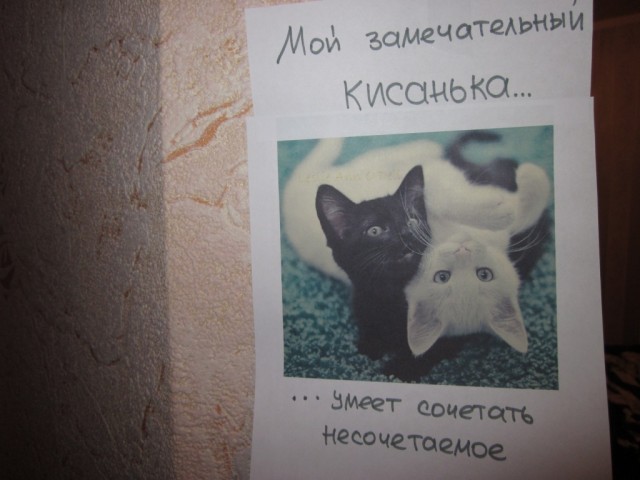 Мой замечательный
кисанька...
... умеет сочетать
несочетаемое